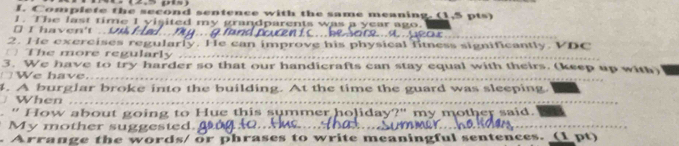 (2,5 pts)
I. Complete the second sentence with the same meaning. (1,5 pts)
1. The last time I visited my grandparents was a year ago.
I haven't visited my grandparents before a year
2. He exercises regularly. He can improve his physical fitness significantly. VDC
The more regularly
3. We have to try harder so that our handicrafts can stay equal with theirs. (keep up with)
We have
4. A burglar broke into the building. At the time the guard was sleeping.
When
. " How about going to Hue this summer holiday?" my mother said.
My mother suggested going to Hue that summer holiday
. Arrange the words/ or phrases to write meaningful sentences. (1 pt)